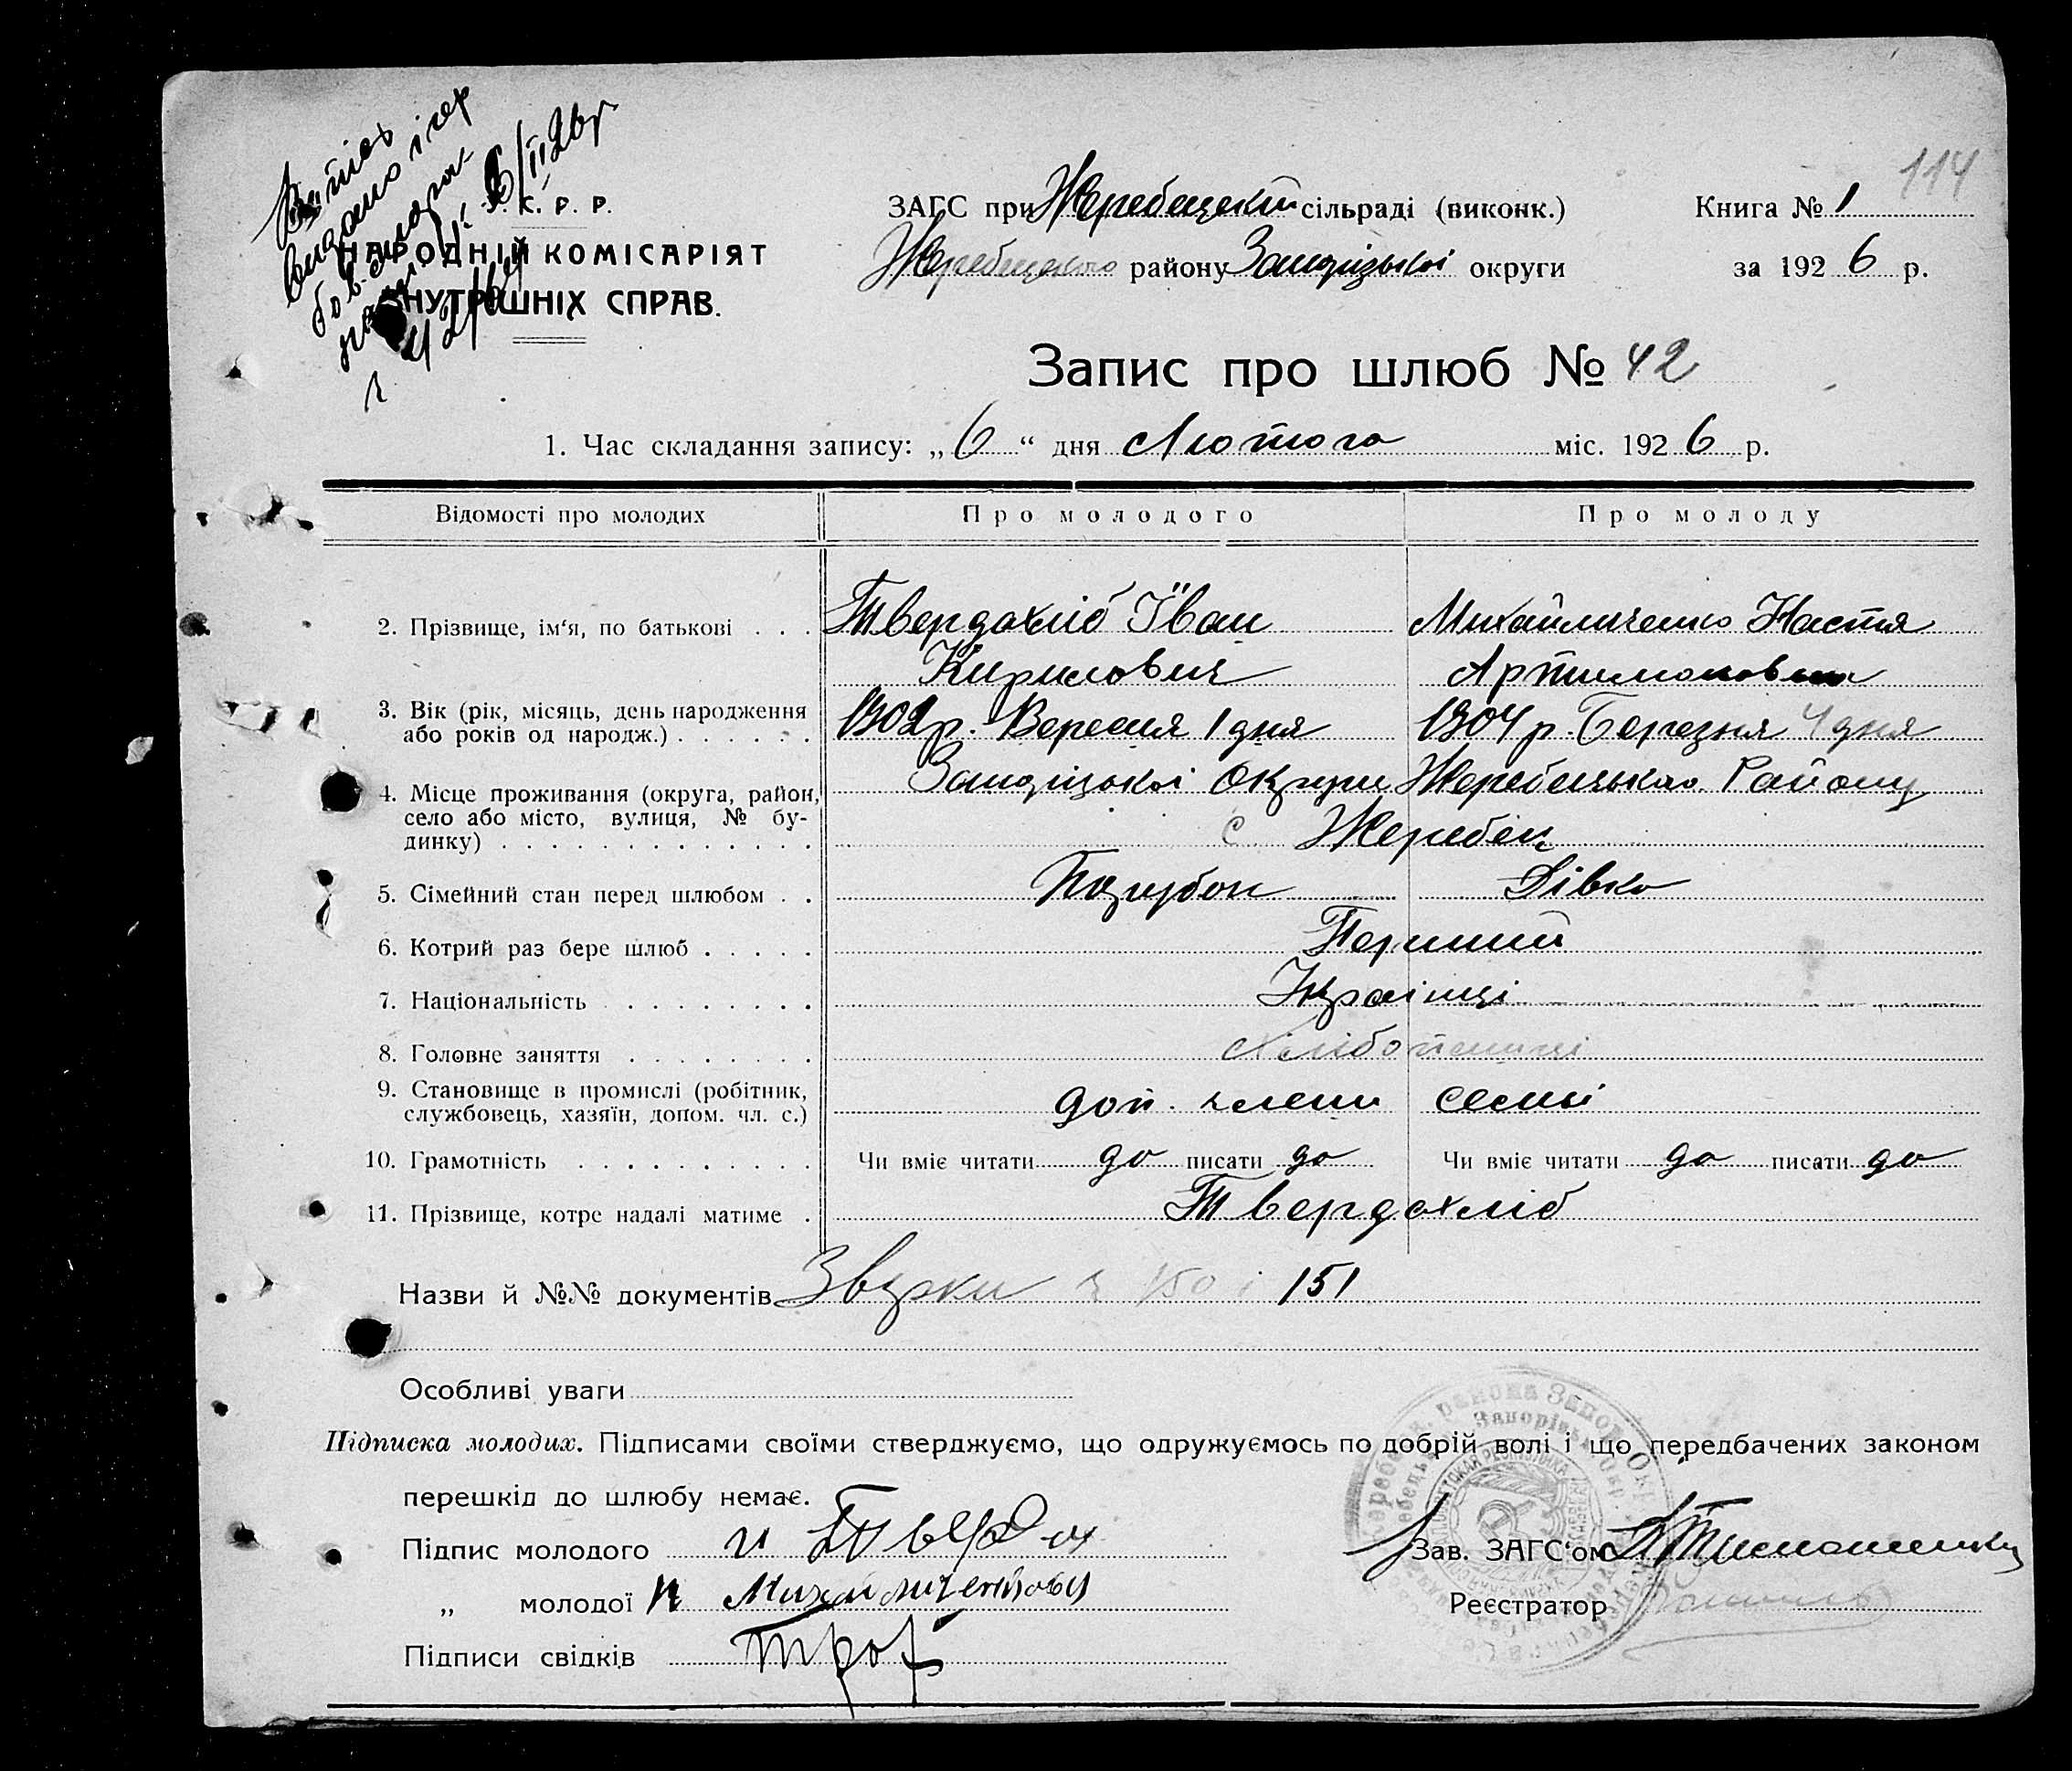 Витяг
видано і гер
бов. марка
6/II 26р
42/64
У. С. Р. Р.
НАРОДНІЙ КОМІСАРІЯТ
ВНУТРІШНІХ СПРАВ.
ЗАГС при Жеребецькій сільраді (виконк.)
Жеребецького району Запорізької округи
Книга № 1
114
за 1926 р.
Запис про шлюб № 42
1. Час складання запису: „6“ дня Лютого міс. 1926 р.
Відомості про молодих Про молодого Про молоду
2. Прізвище, ім‘я, по батькові . . . Твердохліб Іван Михайличенко Настя
Кирилович Артимоновна
3. Вік (рік, місяць, день народження 1902 р. Вересня 1 дня 1904 р. Березня 4 дня
або років од народж.) . . . . . .
Запоріцької Округи Жеребецького Району
4. Місце проживання (округа, район,
село або місто, вулиця, № бу-
динку) . . . . . . . . . . . . . с Жеребец
5. Сімейний стан перед шлюбом . . Парубок Дівка
6. Котрий раз бере шлюб . . . . . Перший
7. Національність . . . . . . . . Українці
8. Головне заняття . . . . . . . . Хлібопашці
9. Становище в промислі (робітник,
службовець, хазяїн, допом. чл. с.) доп. члени семьі
10. Грамотність . . . . . . . . . . Чи вміє читати да писати да Чи вміє читати да писати да
11. Прізвище, котре надалі матиме . Твердохліб
Назви й №№ документів Звірки ч 150 і 151
Особливі уваги
Підписка молодих. Підписами своїми стверджуємо, що одружуємось по добрій волі і що передбачених законом
перешкід до шлюбу немає.
Підпис молодого И Твердох
„ молодої Н Михайличенкова
Підписи свідків Троф
Зав. ЗАГС‘ом Тимошенко
Реєстратор